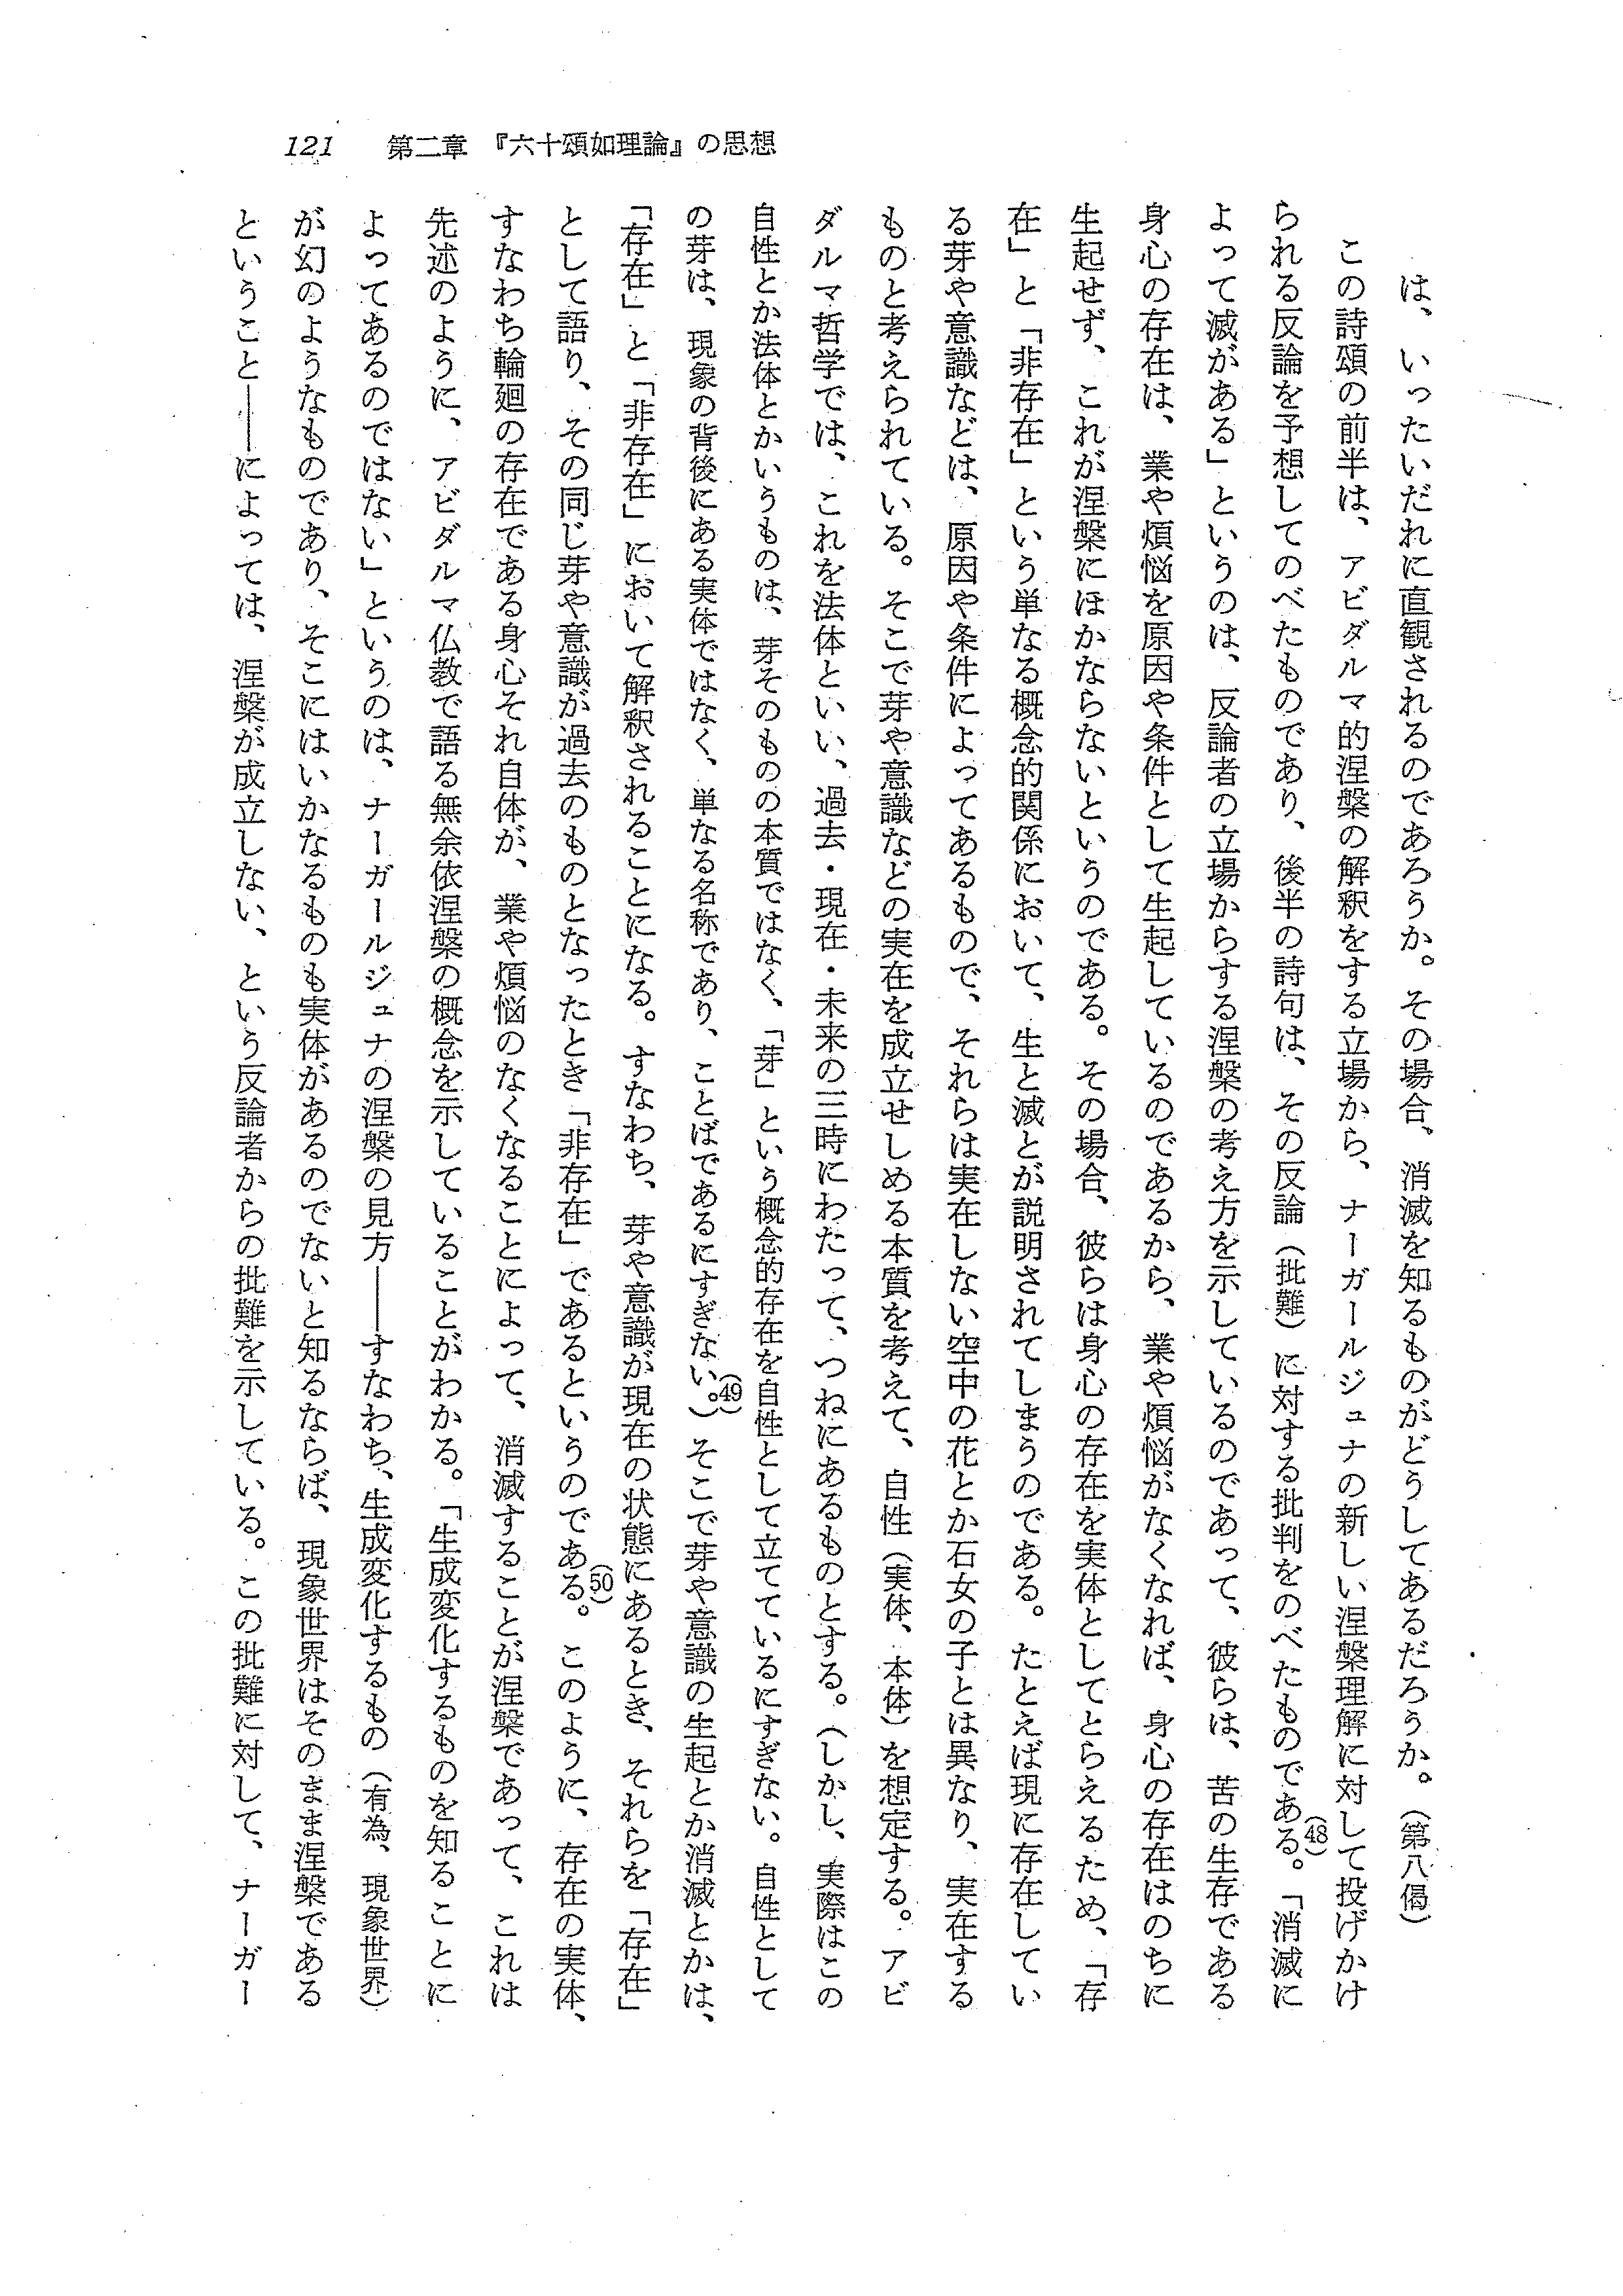 121 第二章 『六十頌如理論』の思想
は、いったいだれに直観されるのであろうか。その場合、消滅を知るものがどうしてあるだろうか。（第八偈）
この詩頌の前半は、アビダルマ的涅槃の解釈をする立場から、ナーガールジュナの新しい涅槃理解に対して投げかけ
られる反論を予想してのべたものであり、後半の詩句は、その反論（批難）に対する批判をのべたものである。(48)「消滅に
よって滅がある」というのは、反論者の立場からする涅槃の考え方を示しているのであって、彼らは、苦の生存である
身心の存在は、業や煩悩を原因や条件として生起しているのであるから、業や煩悩がなくなれば、身心の存在はのちに
生起せず、これが涅槃にほかならないというのである。その場合、彼らは身心の存在を実体としてとらえるため、「存
在」と「非存在」という単なる概念的関係において、生と滅とが説明されてしまうのである。たとえば現に存在してい
る芽や意識などは、原因や条件によってあるもので、それらは実在しない空中の花とか石女の子とは異なり、実在する
ものと考えられている。そこで芽や意識などの実在を成立せしめる本質を考えて、自性（実体、本体）を想定する。アビ
ダルマ哲学では、これを法体といい、過去・現在・未来の三時にわたって、つねにあるものとする。（しかし、実際はこの
自性とか法体とかいうものは、芽そのものの本質ではなく、「芽」という概念的存在を自性として立てているにすぎない。自性として
の芽は、現象の背後にある実体ではなく、単なる名称であり、ことばであるにすぎない。(49)）そこで芽や意識の生起とか消滅とかは、
「存在」と「非存在」において解釈されることになる。すなわち、芽や意識が現在の状態にあるとき、それらを「存在」
として語り、その同じ芽や意識が過去のものとなったとき「非存在」であるというのである。(50)このように、存在の実体、
すなわち輪廻の存在である身心それ自体が、業や煩悩のなくなることによって、消滅することが涅槃であって、これは
先述のように、アビダルマ仏教で語る無余依涅槃の概念を示していることがわかる。「生成変化するものを知ることに
よってあるのではない」というのは、ナーガールジュナの涅槃の見方――すなわち、生成変化するもの（有為、現象世界）
が幻のようなものであり、そこにはいかなるものも実体があるのでないと知るならば、現象世界はそのまま涅槃である
ということ――によっては、涅槃が成立しない、という反論者からの批難を示している。この批難に対して、ナーガー